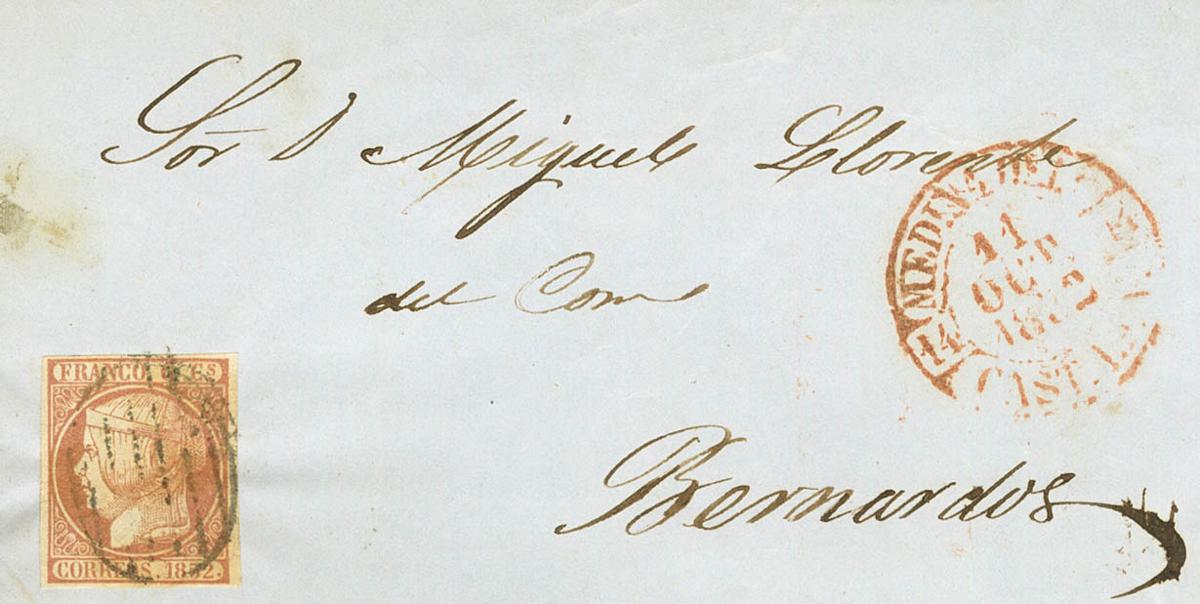 Sor D Miguel Llorente
del Com
Bernardos
MEDINA DEL
11
OCT
1852
14
CAST. LA V
FRANCO 6 Cs
CORREOS. 1852.